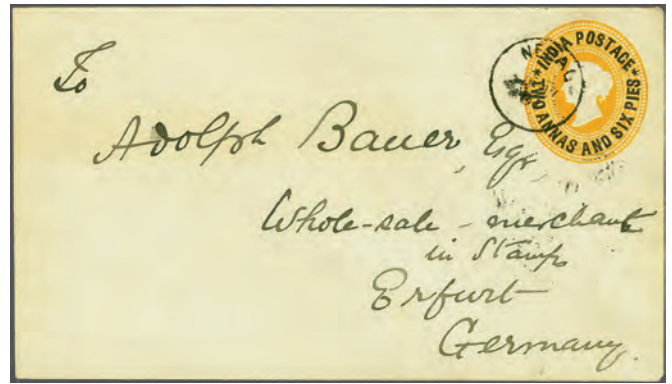 INDIA POSTAGE
TWO ANNAS AND SIX PIES
To
Adolph Bauer, Esqr,
Whole-sale - merchant
in Stamps
Erfurt
Germany.